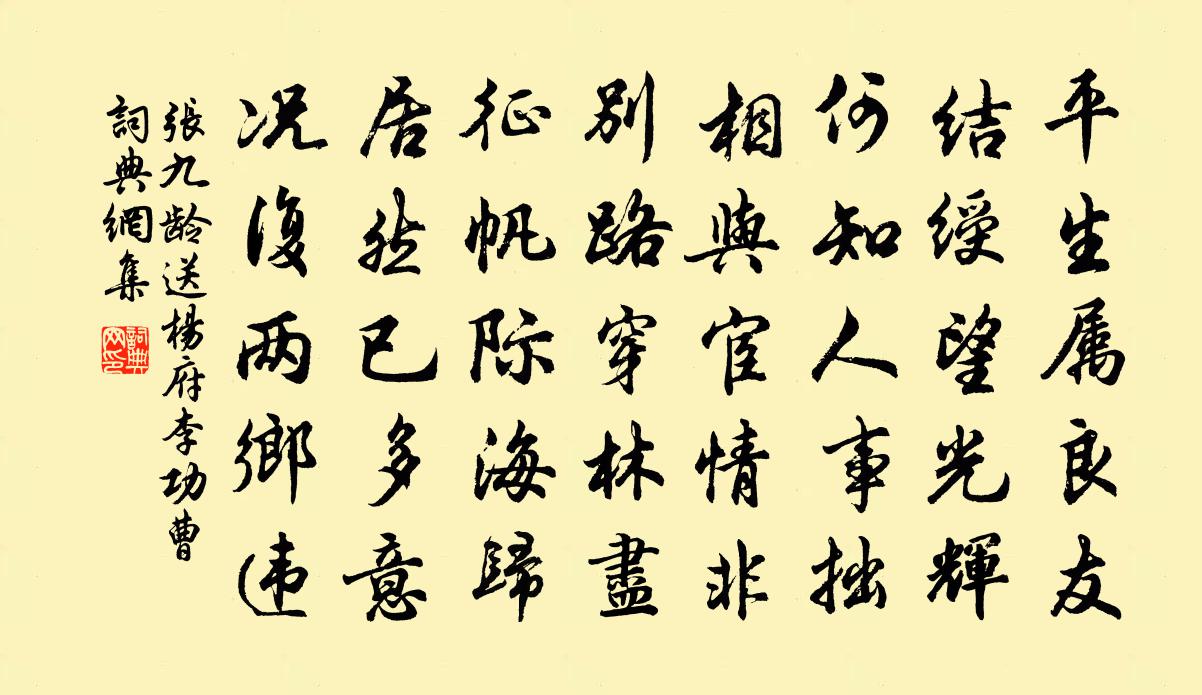 平生属良友
结绶望光輝
何知人事拙
相與宦情非
别路穿林盡
征帆际海歸
居然已多意
况復两鄉违
張九龄送楊府李功曹
詞典網集
詞典
网印